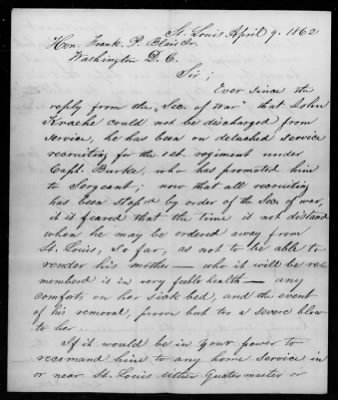 St. Louis April 9. 1862
Hon. Frank. P. Blair Jr.
Washington D. C.
Sir;
Ever since the
reply from the "Sec. of War" that John
could not be discharged from
service, he has been on detached service
recruiting for the reb. regiment under
Capt. Burke, who has promoted him
to Sergeant; now that all recruiting
has been stop'd by order of the Sec of war,
it is feared that the time is not distand
when he may be ordered away from
St. Louis, so far, as not to be able to
render his mother — who it will be re-
memberd is in very feeble health — any
comforts on her sick bed, and the event
of his removal, prove but too a severe blow
to her.
If it would be in your power to
recomand him to any home service in
or near St. Louis either Quatermaster or